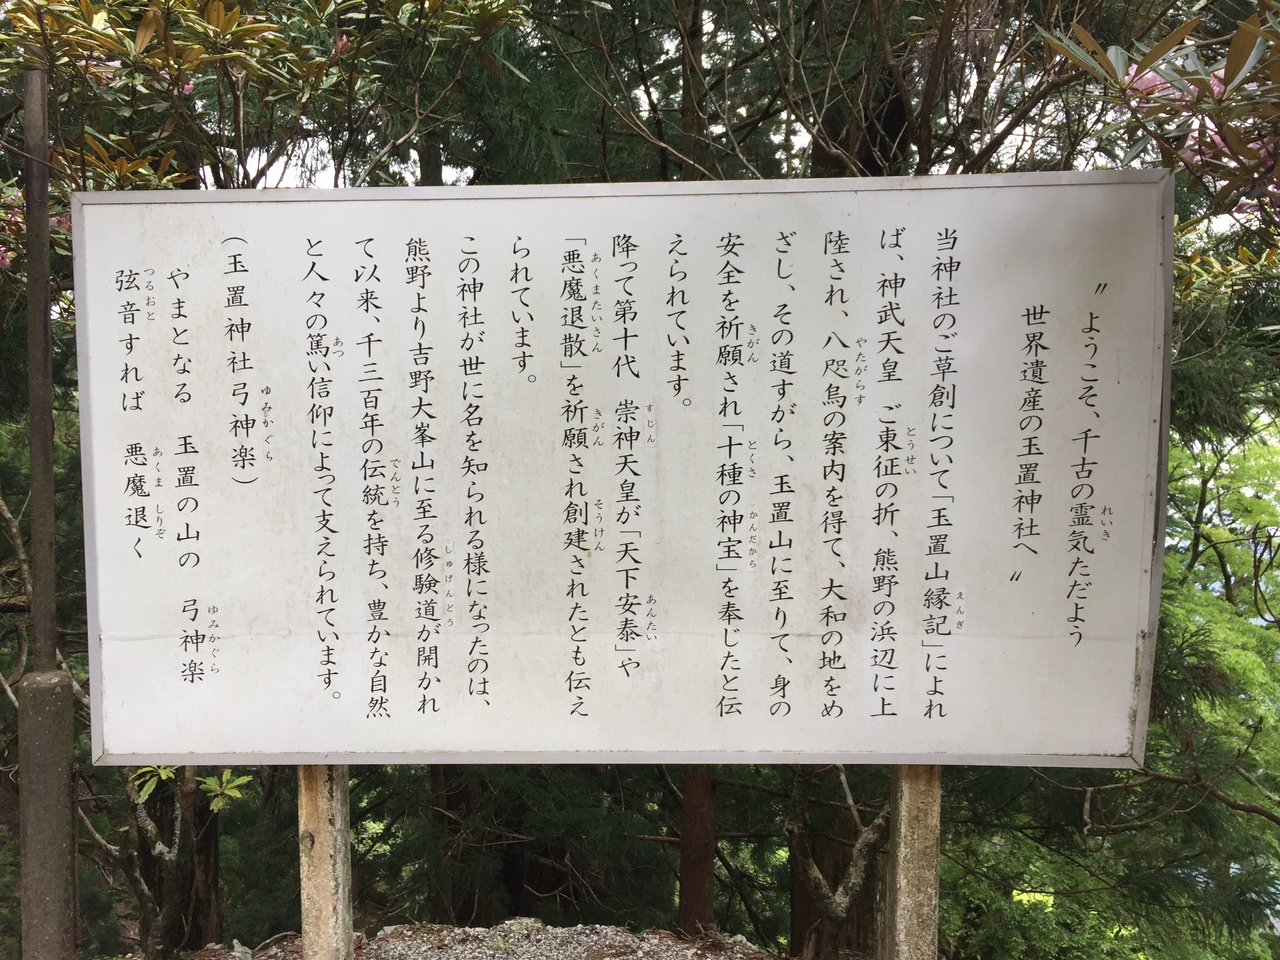 〃ようこそ、千古の霊気ただよう
世界遺産の玉置神社へ〃
当神社のご草創について「玉置山縁記」によれ
ば、神武天皇 ご東征の折、熊野の浜辺に上
陸され、八咫烏の案内を得て、大和の地をめ
ざし、その道すがら、玉置山に至りて、身の
安全を祈願され「十種の神宝」を奉じたと伝
えられています。
降って第十代 崇神天皇が「天下安泰」や
「悪魔退散」を祈願され創建されたとも伝え
られています。
この神社が世に名を知られる様になったのは、
熊野より吉野大峯山に至る修験道が開かれ
て以来、千三百年の伝統を持ち、豊かな自然
と人々の篤い信仰によって支えられています。
（玉置神社弓神楽）
やまとなる 玉置の山の 弓神楽
弦音すれば 悪魔退く